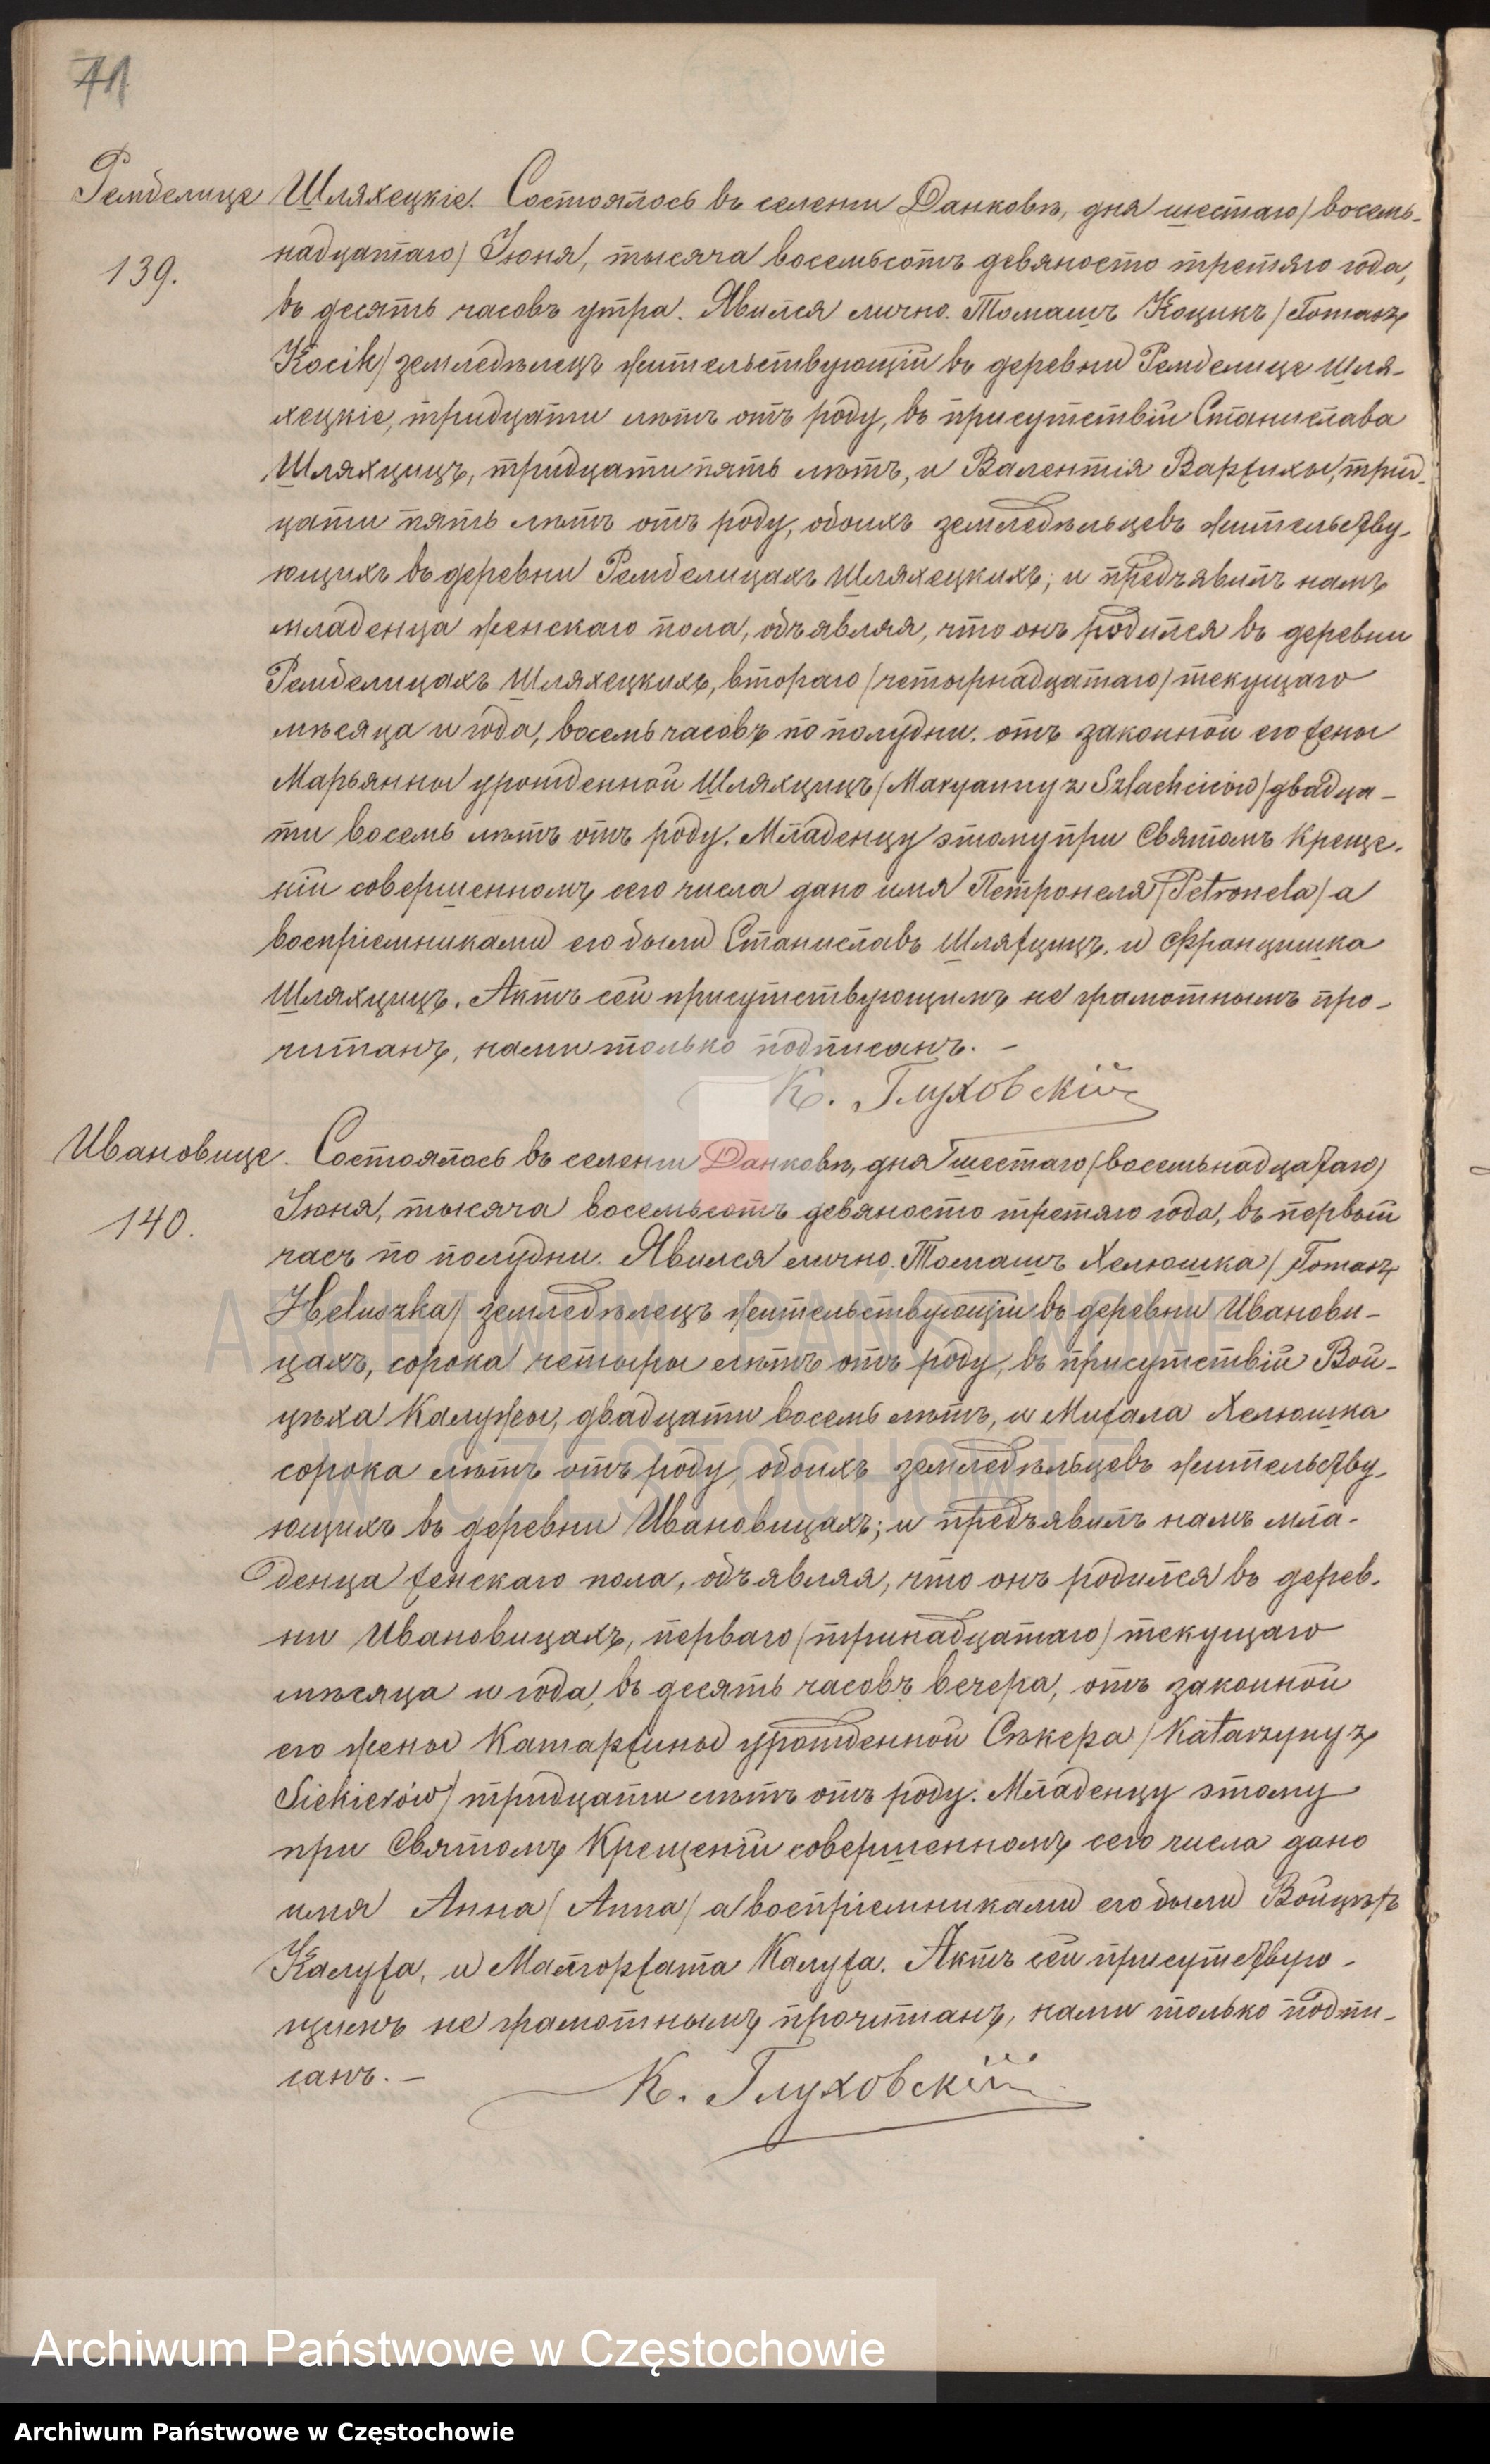 71
Рембелице Шляхецкіе. Состоялось въ селеніи Данковѣ, дня шестаго/восем-
139.
надцатаго/ Іюня, тысяча восемьсотъ девяносто третяго года,
въ десять часовъ утра. Явился лично. Томашъ Коцикъ /Tomasz
Kocik/ земледѣлецъ жительствующій въ деревни Рембелице Шля-
хецкіе, тридцати лѣтъ отъ роду, въ присутствіи Станислава
Шляхцицъ, тридцати пять лѣтъ, и Валентія Вархихы, трид-
цати пять лѣтъ отъ роду, обоихъ земледѣльцевъ жительству-
ющихъ въ деревни Рембелицахъ Шляхецкихъ; и предъявилъ намъ
младенца женскаго пола, объявляя, что онъ родился въ деревни
Рембелицахъ Шляхецкихъ, втораго /четырнадцатаго/ текущаго
мѣсяца и года, восемь часовъ по полудни. отъ законной его жены
Марьянны урожденной Шляхцицъ /Maryanny z Szlachciców/ двадца-
ти восемь лѣтъ отъ роду. Младенцу этому при Святомъ Креще-
ніи совершенномъ сего числа дано имя Петронеля /Petronela/ а
воспріемниками его были Станиславъ Шляхцицъ, и Францишка
Шляхцицъ. Актъ сей присутствующимъ не грамотнымъ про-
читанъ, нами только подписанъ. –
К. Глуховскій
Ивановице. Состоялось въ селеніи Данковѣ, дня шестаго/восемьнадцатаго/
140.
Іюня, тысяча восемьсотъ девяносто третяго года, въ первый
часъ по полудни. Явился лично. Томашъ Хелюшка /Tomasz
Heluszka/ земледѣлецъ жительствующій въ деревни Иванови-
цахъ, сорока четыры лѣтъ отъ роду, въ присутствіи Вой-
цѣха Калужы, двадцати восемь лѣтъ, и Михала Хелюшка
сорока лѣтъ отъ роду, обоихъ земледѣльцевъ жительству-
ющихъ въ деревни Ивановицахъ; и предъявилъ намъ мла-
денца женскаго пола, объявляя, что онъ родился въ дерев-
ни Ивановицахъ, перваго /тринадцатаго/ текущаго
мѣсяца и года, въ десять часовъ вечера, отъ законной
его жены Катаржины урожденной Сѣкера /Katarzyny z
Siekierów/ тридцати лѣтъ отъ роду. Младенцу этому
при Святомъ Крещеніи совершенномъ сего числа дано
имя Анна /Anna/ а воспріемниками его были Войцѣхъ
Калужа, и Малгоржата Калужа. Актъ сей присутствую-
щимъ не грамотнымъ прочитанъ, нами только подпи-
санъ. –
К. Глуховскій
ARCHIWUM PAŃSTWOWE
W CZĘSTOCHOWIE
Archiwum Państwowe w Częstochowie
Archiwum Państwowe w Częstochowie